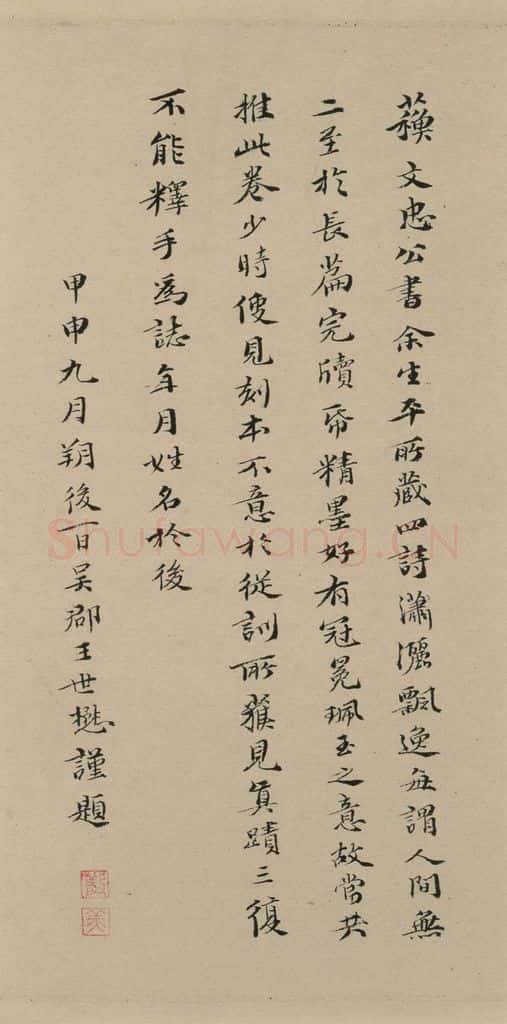 蘓文忠公書余生平所藏四詩瀟灑飄逸每謂人間無
二至於長篇完牘帋精墨好有冠冕珮玉之意故當共
推此卷少時便見刻本不意於從訓所獲見真蹟三復
不能釋手為誌年月姓名於後
甲申九月朔後一日吴郡王世懋謹題
敬美
Shufawang.CN